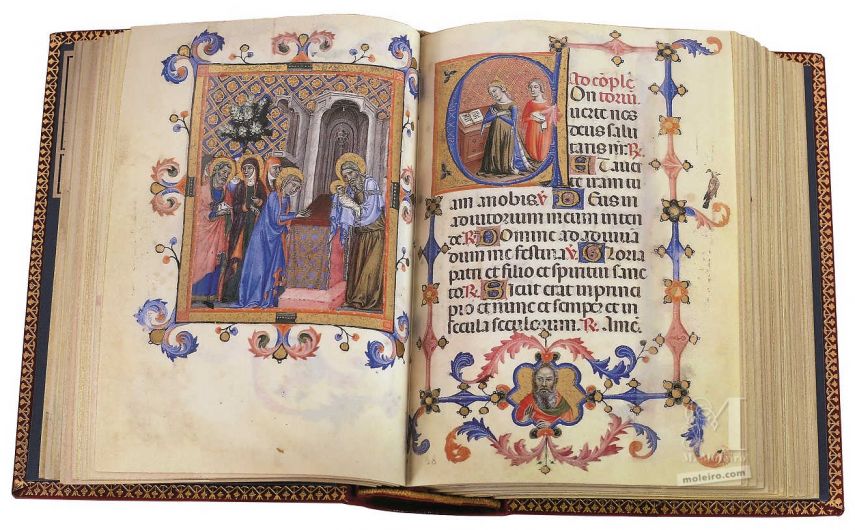 Ad cõplē
COn toriũ.
uerte nos
deus salu
taris nr̃. R.
Et auerte
iram tu
am a nobis. V. Deus in
adiutorium meum inten
de. R. Domine ad adiuuã
dum me festina. V. Gloria
patri et filio et spiritui sanc
to. R. Sicut erat in princi
pio et nunc et semper et in
secula seculorum. R. Amē.
M
MOLEIRO
moleiro.com